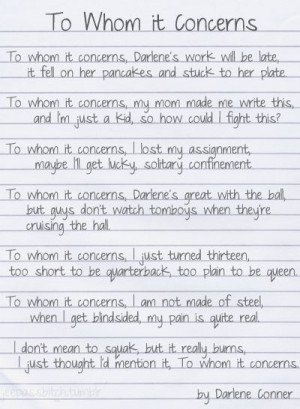 To Whom it Concerns
To whom it concerns, Darlene's work will be late,
it fell on her pancakes and stuck to her plate.
To whom it concerns, my mom made me write this,
and I'm just a kid, so how could I fight this?
To whom it concerns, I lost my assignment,
maybe I'll get lucky, solitary confinement.
To whom it concerns, Darlene's great with the ball,
but guys don't watch tomboys when they're
cruising the hall.
To whom it concerns, I just turned thirteen,
too short to be quarterback, too plain to be queen.
To whom it concerns, I am not made of steel,
when I get blindsided, my pain is quite real.
I don't mean to squak, but it really burns,
I just thought I'd mention it, To whom it concerns.
by Darlene Conner